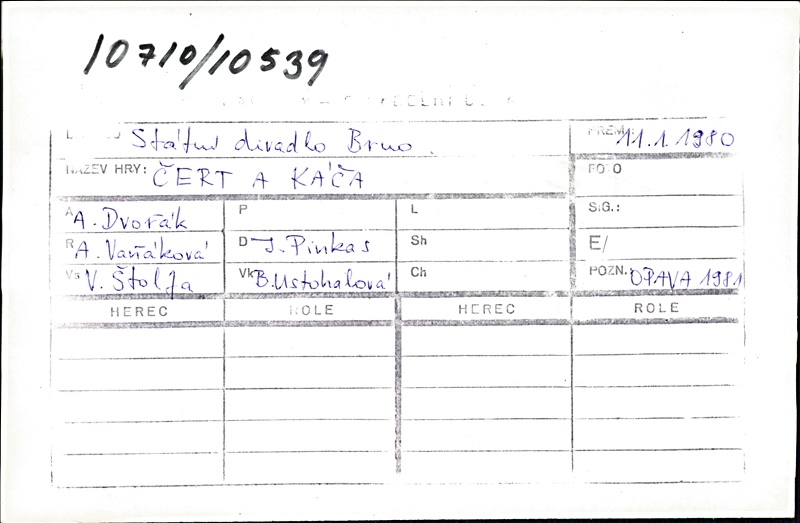 10710/10539
Státní divadlo Brno.
PREM.: 11.1.1980
NÁZEV HRY: ČERT A KÁČA
FOTO
A A. Dvořák
P
L
SIG.:
R A. Vaňáková
D J. Pinkas
Sh
E/
Vs V. Štolfa
Vk B. Ustohalová
Ch
POZN.: OPAVA 1981
HEREC ROLE HEREC ROLE